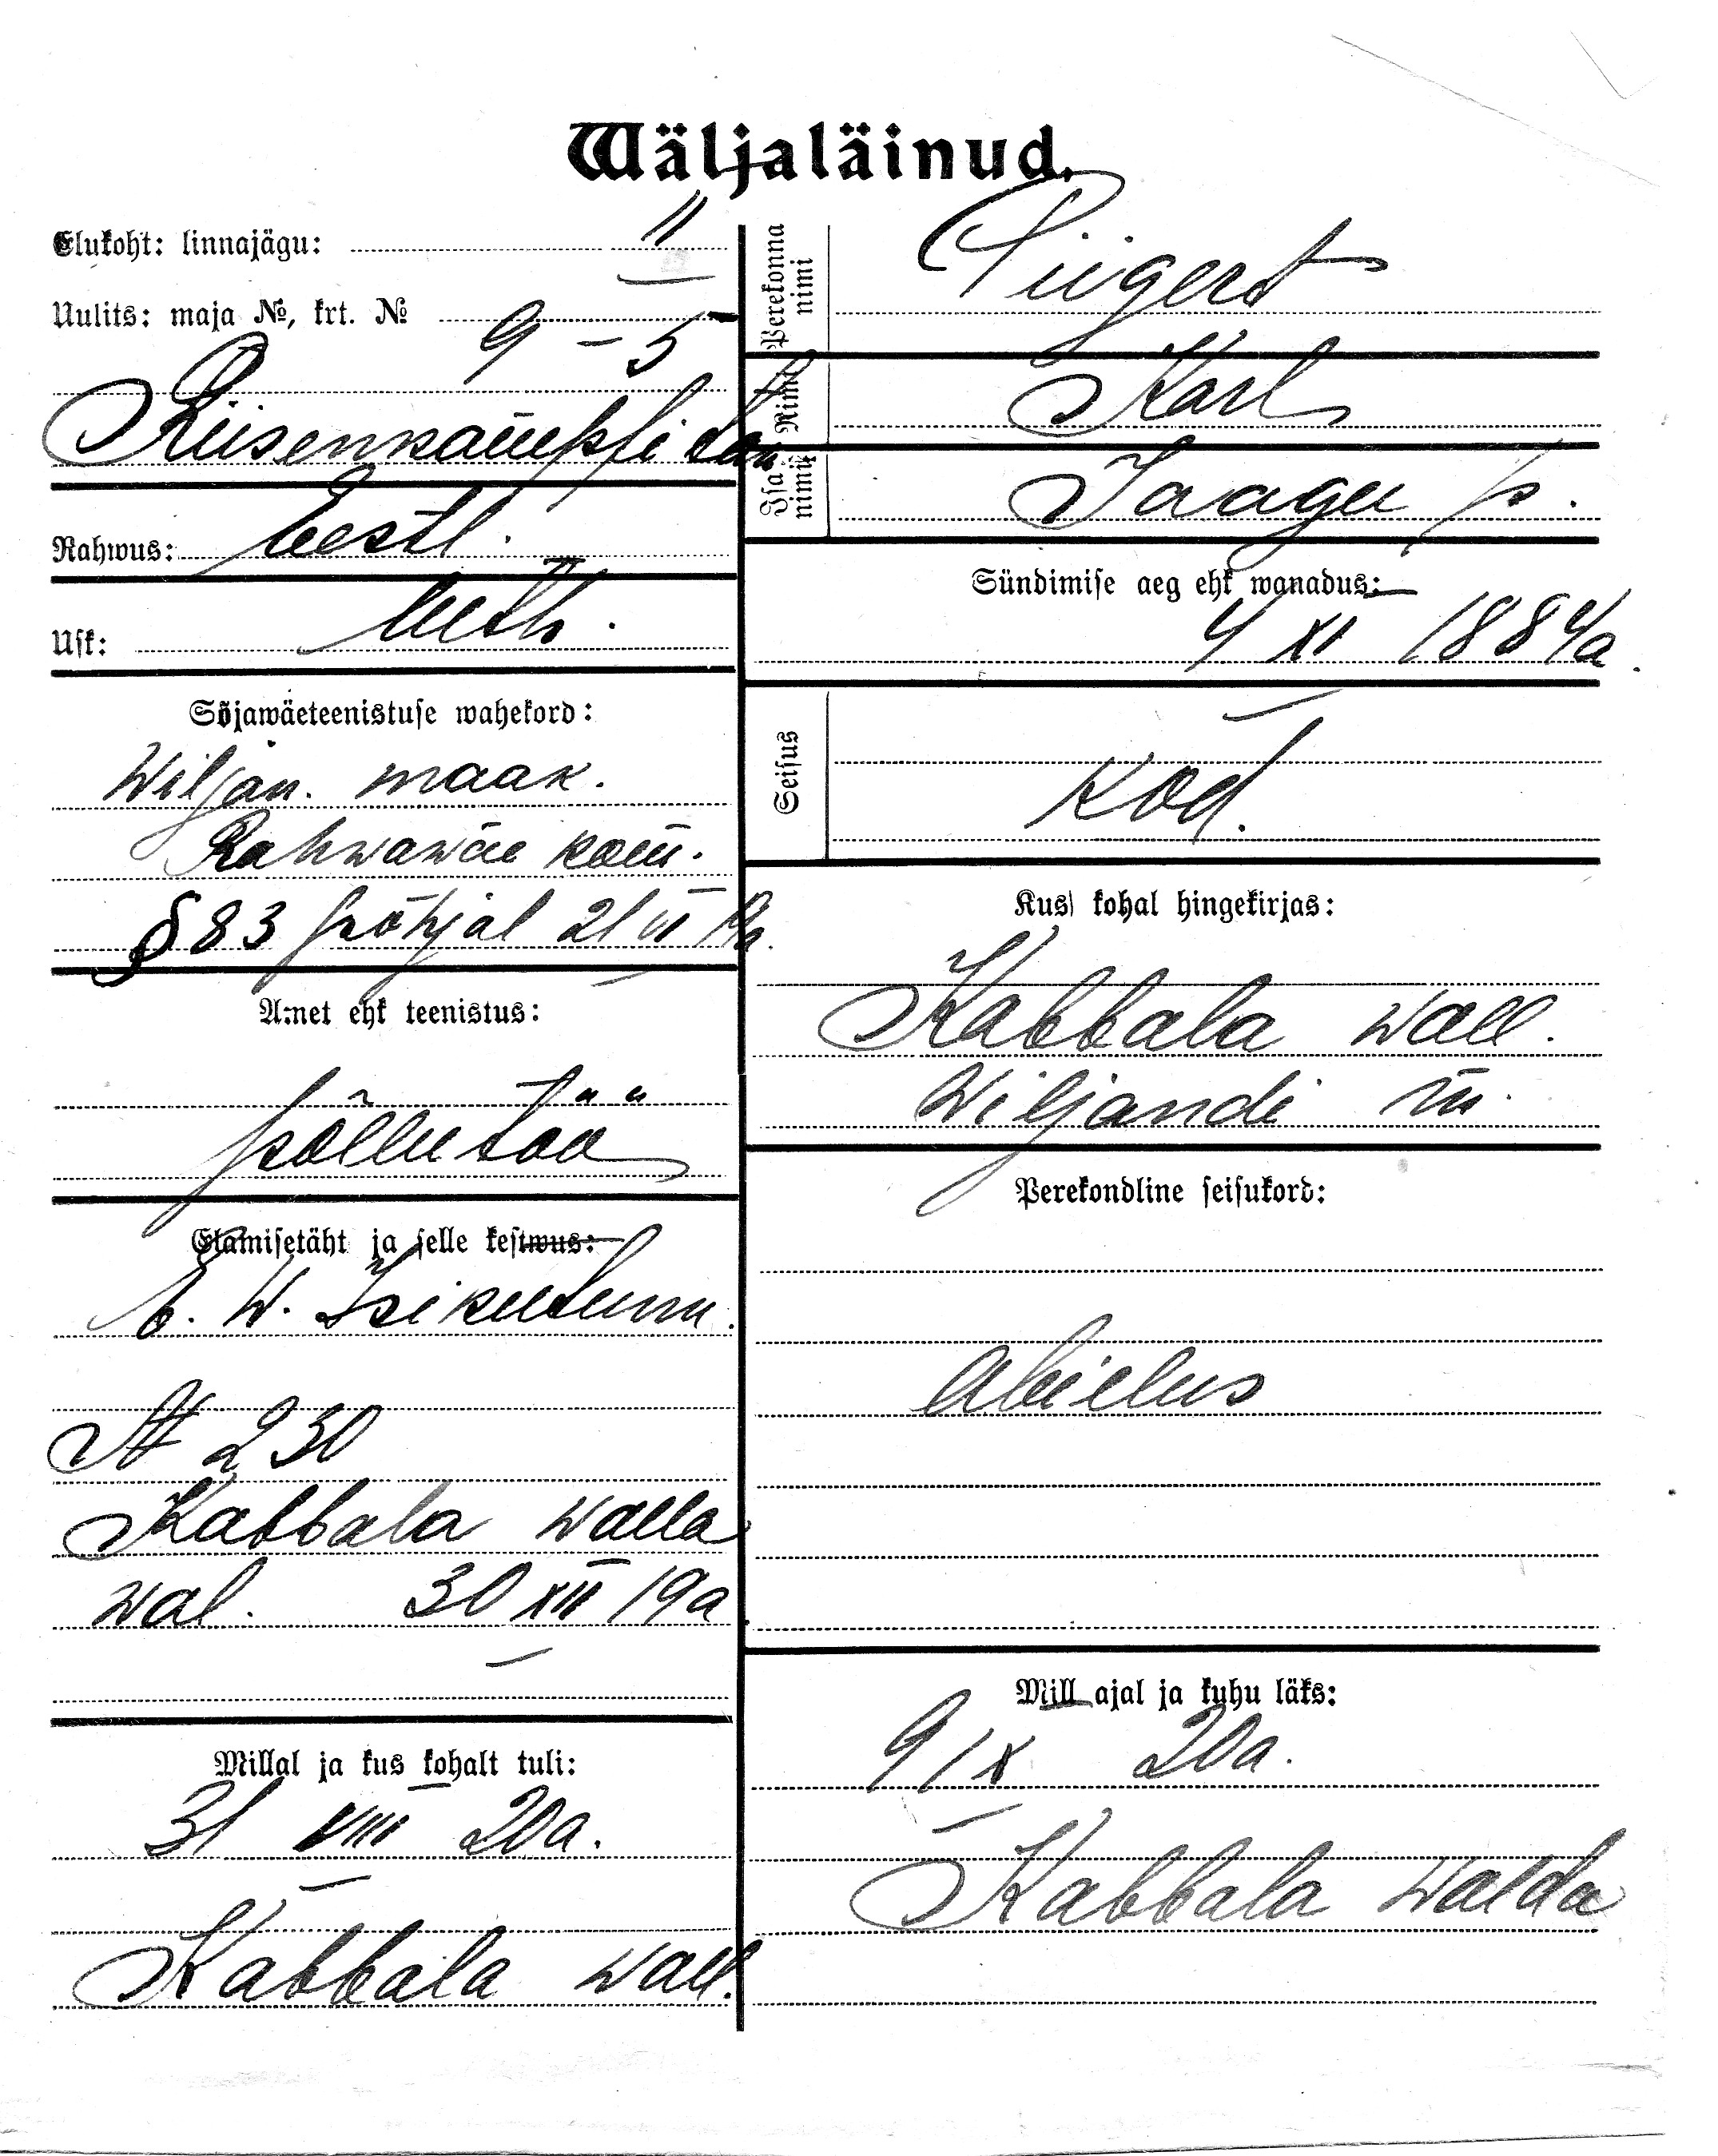 Wäljaläinud.
Elukoht: linnajägu: II
Uulits: maja №, krt. № 9 – 5
Riisenkampfi tän
Rahwus: Eestl.
Usk: luth.
Sõjawäeteenistuse wahekord:
Wiljan. maak.
Rahwawäe kom.
§ 83 põhjal 21 VI 19a.
Amet ehk teenistus:
põllutöö
Elamisetäht ja selle kestwus:
E. W. Isikutunn.
№ 230
Kabbala walla
wal. 30 XII 19a
Millal ja kus kohalt tuli:
31 VIII 20a.
Kabbala wall.
Perekonna nimi
Piigert
Nimi
Karl
Isa nimi
Jaagu p.
Sündimise aeg ehk wanadus:
4 XI 1884a.
Seisus
kod.
Kus kohal hingekirjas:
Kabbala wall.
Wiljandi m.
Perekondline seisukord:
abielus
Mill ajal ja kuhu läks:
9 IX 20a.
Kabbala walda